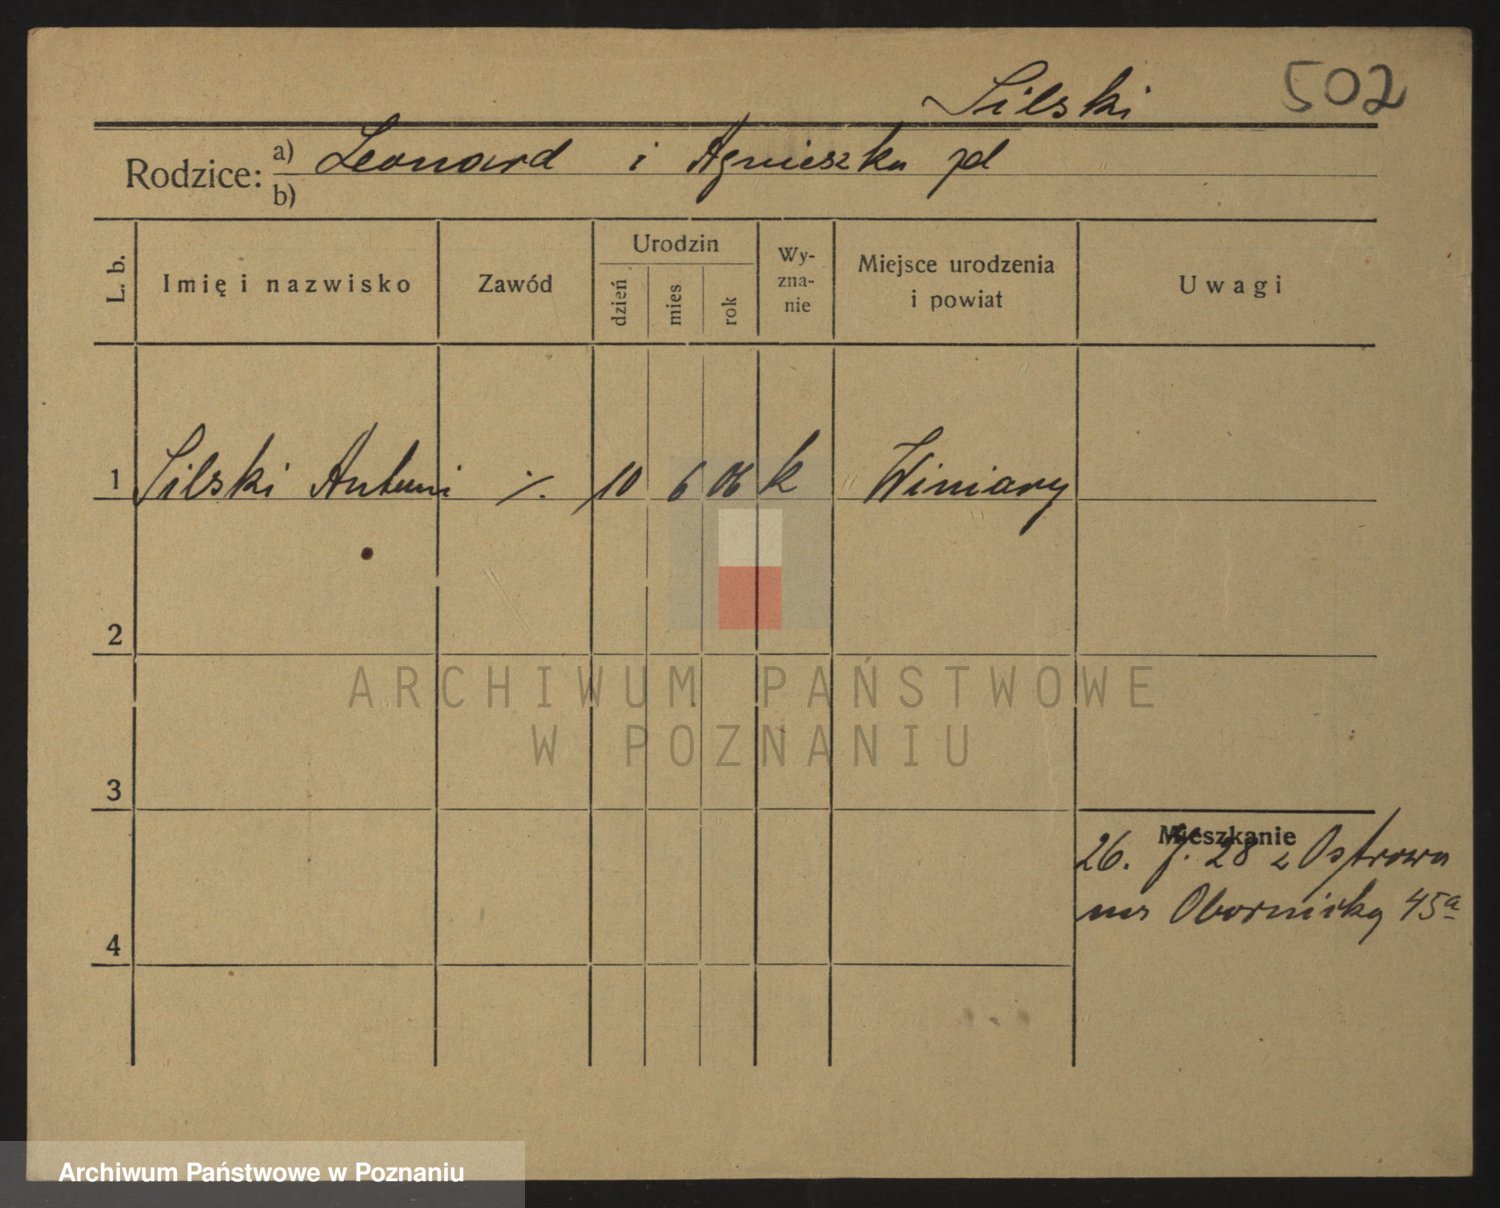 Silski 502
Rodzice: a) Leonard i Agnieszka
b)
L. b. Imię i nazwisko Zawód Urodzin dzień mies rok Wyznanie Miejsce urodzenia i powiat Uwagi
1 Silski Antoni ./. 10 6 06 k Winiary
2
ARCHIWUM PAŃSTWOWE
W POZNANIU
3
Mieszkanie
26. 28 z Ostrowa
na Obornicką 45a
4
Archiwum Państwowe w Poznaniu